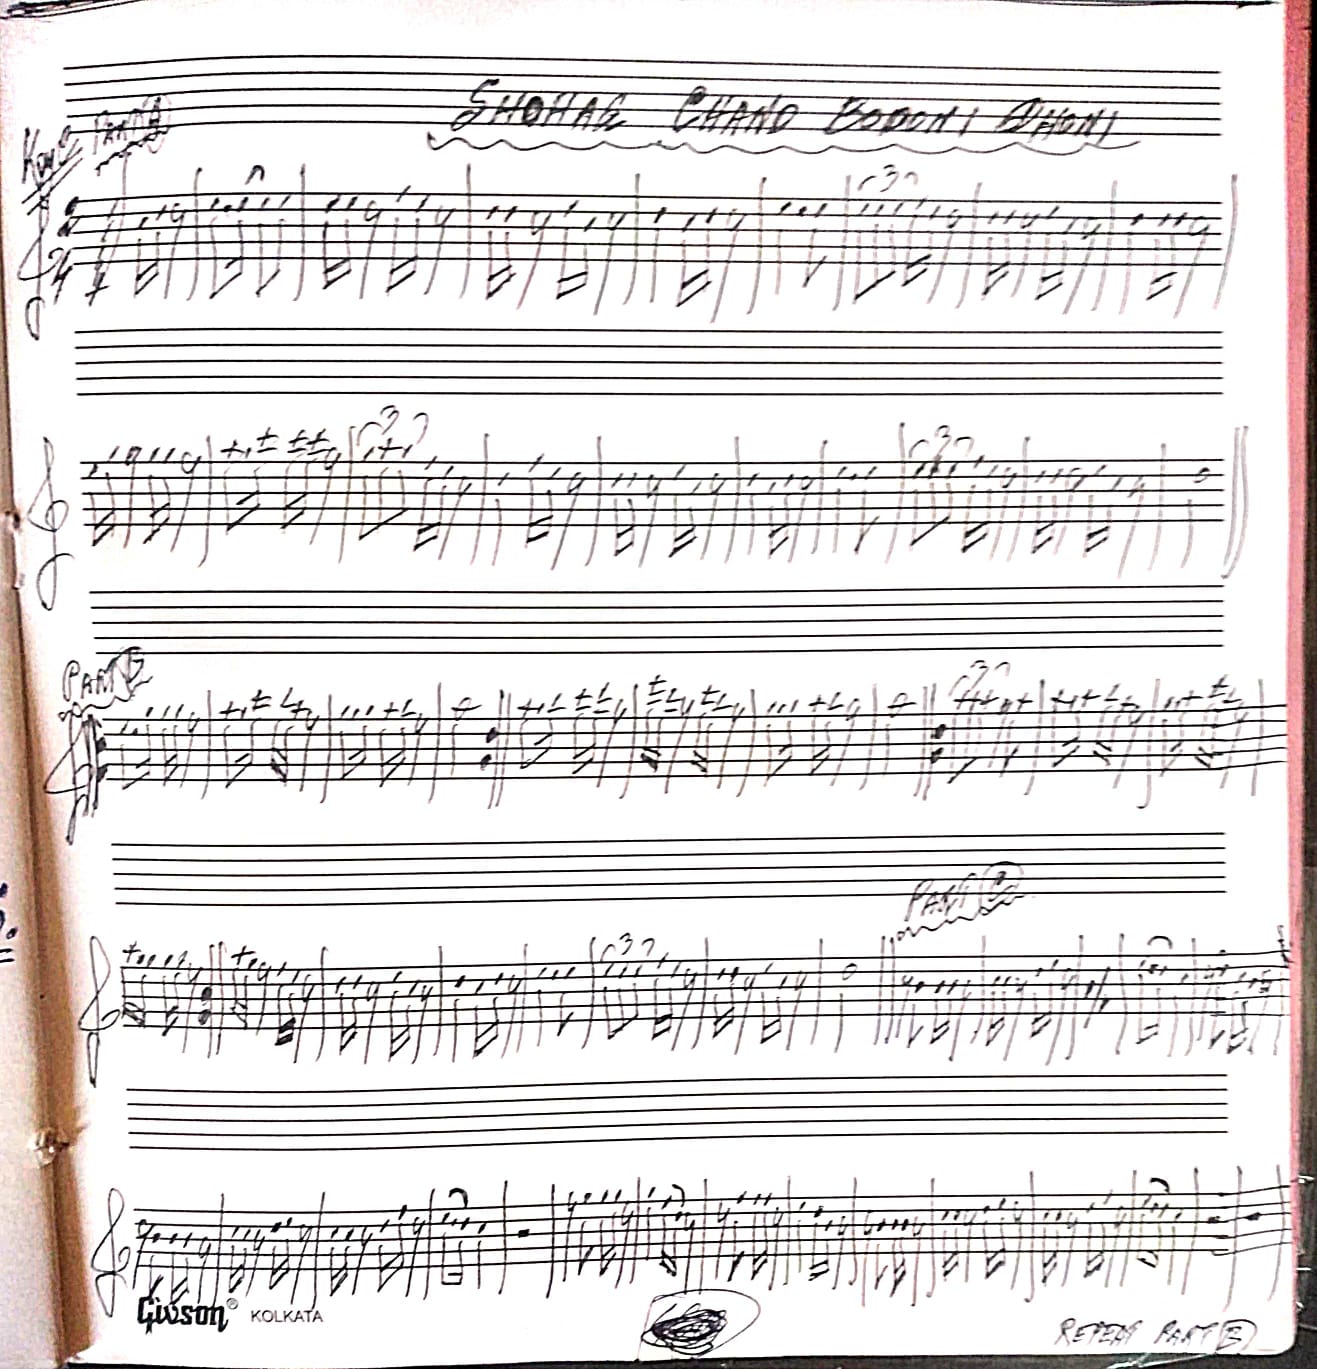 SHOHAG CHAND BODONI DHONI
Key C PART A
2
4
3
3
3
PART B
3
PART C
3
Givson® KOLKATA
REPEAT PART B